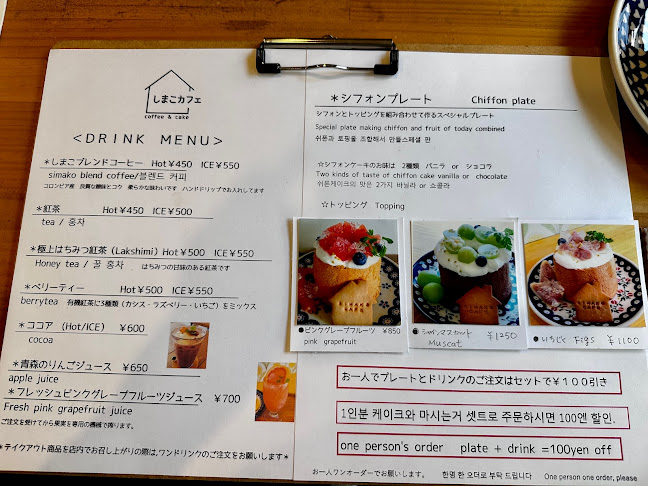 しまこカフェ
coffee & cake
<DRINK MENU>
＊しまこブレンドコーヒー Hot¥450 ICE¥550
simako blend coffee/블렌드 커피
コロンビア産 良質な酸味とコク 柔らかな味わいです ハンドドリップでお入れしてます
＊紅茶 Hot¥450 ICE¥500
tea / 홍차
＊極上はちみつ紅茶（Lakshimi）Hot¥500 ICE¥550
Honey tea / 꿀 홍차 はちみつの甘味のある紅茶です
＊ベリーティー Hot¥500 ICE¥550
berrytea 有機紅茶に3種類（カシス・ラズベリー・いちご）をミックス
＊ココア （Hot/ICE） ¥600
cocoa
＊青森のりんごジュース ¥650
apple juice
＊フレッシュピンクグレープフルーツジュース ¥700
Fresh pink grapefruit juice
ご注文を受けてから果実を専用の機械で搾ります。
＊テイクアウト商品を店内でお召し上がりの際は、ワンドリンクのご注文をお願いします＊
＊シフォンプレート Chiffon plate
シフォンとトッピングを組み合わせて作るスペシャルプレート
Special plate making chiffon and fruit of today combined
쉬폰과 토핑을 조합해서 만들스페셜 펀
☆シフォンケーキのお味は 2種類 バニラ or ショコラ
Two kinds of taste of chiffon cake vanilla or chocolate
쉬폰게이크의 맛은 2가지 바닐라 or 쇼콜라
☆トッピング Topping
●ピンクグレープフルーツ ¥850
pink grapefruit
●シャインマスカット ¥1250
Muscat
●いちじく Figs ¥1100
お一人でプレートとドリンクのご注文はセットで¥１００引き
1인분 케이크와 마시는거 셋트로 주문하시면 100엔 할인.
one person's order plate + drink =100yen off
お一人ワンオーダーでお願いします。 한명 한 오더로 부탁 드립니다 One person one order, please